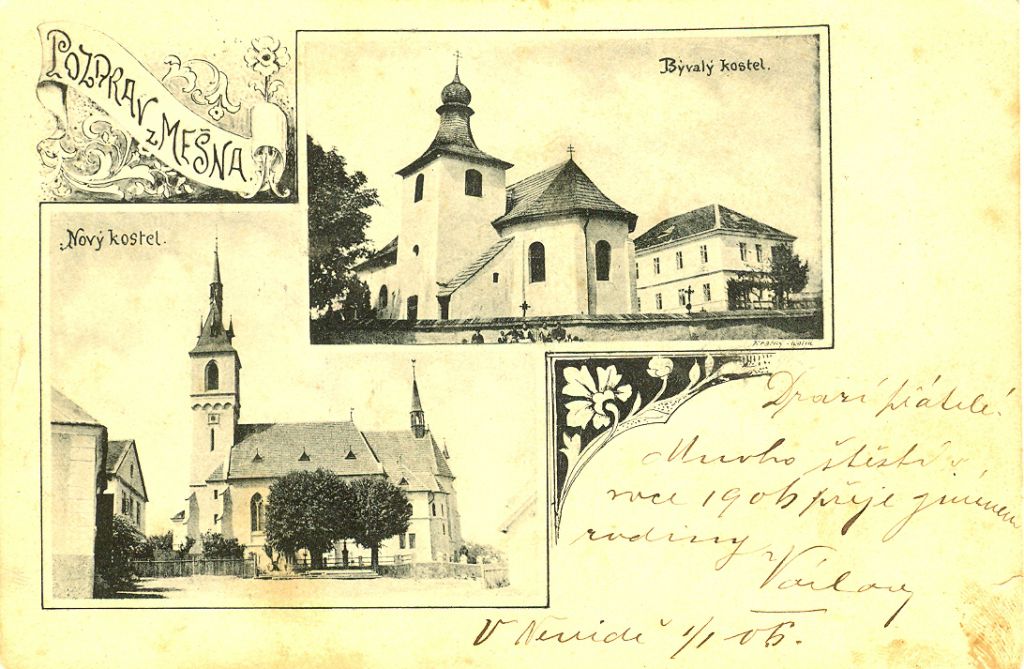 POZDRAV
z MEŠNA.
Bývalý kostel.
Nový kostel.
Drazí přátelé.
Mnoho štěstí v
roce 1906 přeje jménem
rodiny
V 1/1 06.